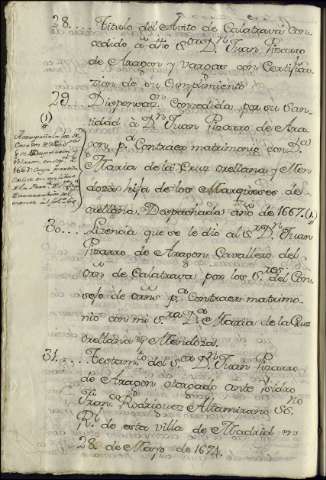 28.... Titulo del Avito de Calatrava con
cedido a dho Sr. Dn. Juan Pizarro
de Aragon y Vargas con Certifica
zion de su Cumplimiento
29.... Dispensaon. Concedida por su San
tidad à Dn. Juan Pizarro de Ara
gon, pa. Contraer matrimonio con Da.
Maria de la Cruz orellana y Men
doza hija de los Marqueses de
orellana. Despachada año de 1667.
30... Lizencia que se le dio al Sr. Dn. Juan
Pizarro de Aragon Cavallero del
orn. de Calatrava por los Sres. del Con
sejo de ordens. pa. Contraer matrimo
nio con mi Sra. Da. Maria de la Cruz
orellana y Mendoza.
31... Testamto. del Sr. Dn. Juan Pizarro
de Aragon otorgado ante Isidro
Franco. Rodriguez Altamirano Sno.
Rl. de esta villa de Madrid en
28 de Mayo de 1671.